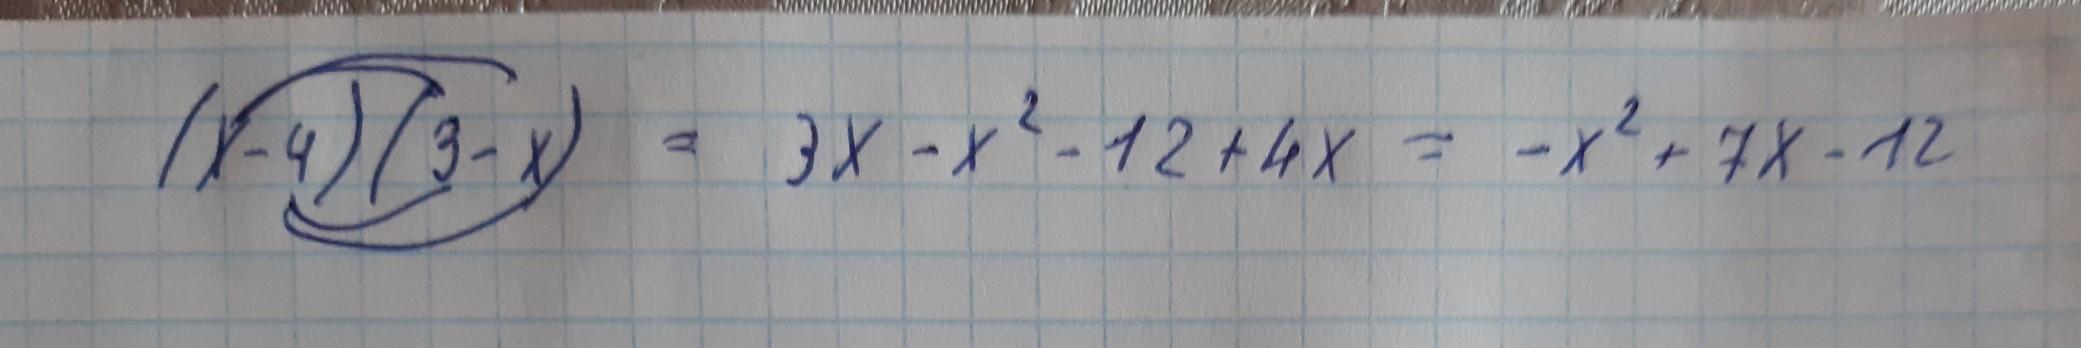 (x-4)(3-x) = 3x - x² - 12 + 4x = -x² + 7x - 12